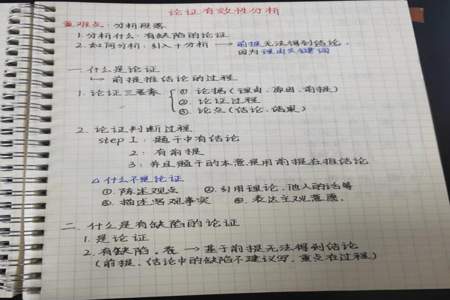 论证有效性分析
重难点：分析段落
1. 分析什么：有缺陷的论证
2. 如何分析：引入＋分析 → 前提无法得到结论.
因为理由+关键词
一. 什么是论证
↳ 前提推结论的过程
1. 论证三要素 { ① 论据（理由、原因、前提）
② 论证过程
③ 论点（结论、结果）
2. 论证判断过程
step 1: 题干中有结论
2: 有前提
3: 并且题干的本意是用前提在推结论
△ 什么不是论证
① 陈述观点 ② 引用理论、他人的话等
③ 描述客观事实 ④ 表达主观意愿.
二. 什么是有缺陷的论证
1. 是论证
2. 有缺陷. → 基于前提无法得到结论
（前提、结论中的缺陷不建议写，重点在过程）